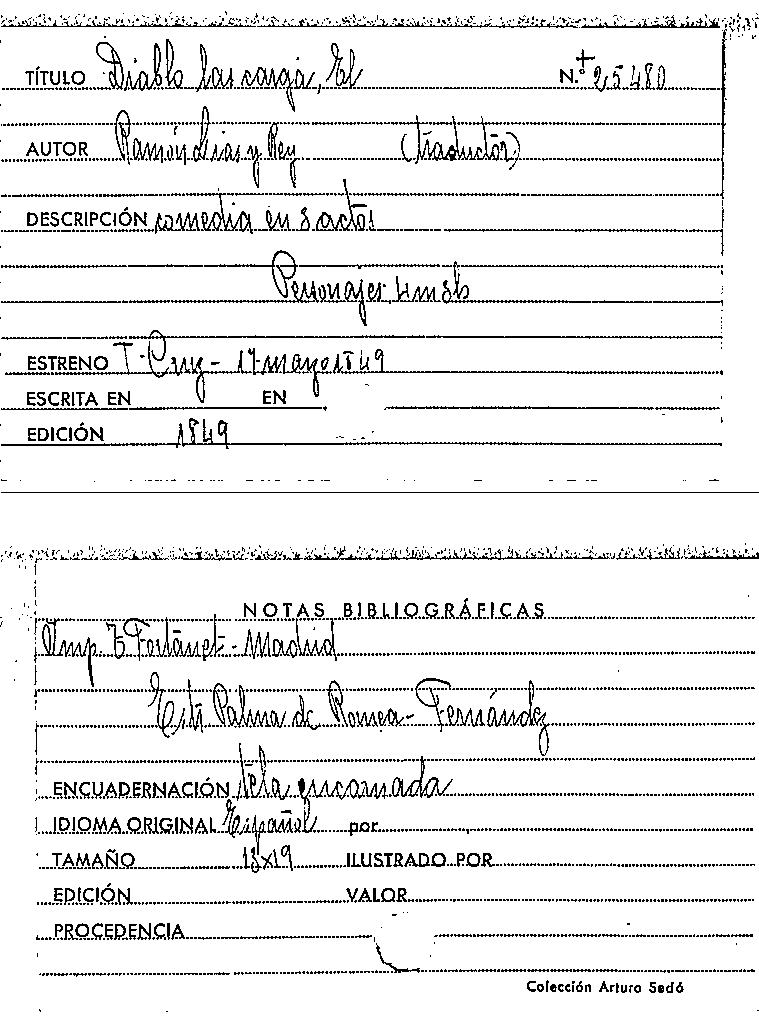 TÍTULO Diablo las carga, El N.º + 25480
AUTOR Ramón Lias y Rey (traductor)
DESCRIPCIÓN comedia en 3 actos
Personajes, 4m 3h
ESTRENO T. Cruz - 17-mayo 1849
ESCRITA EN EN
EDICIÓN 1849
NOTAS BIBLIOGRÁFICAS
Imp. T Fortanet - Madrid
Estr Palma de Romea - Fernández
ENCUADERNACIÓN tela encarnada
IDIOMA ORIGINAL Español por
TAMAÑO 13x19 ILUSTRADO POR
EDICIÓN VALOR
PROCEDENCIA
Colección Arturo Sedó